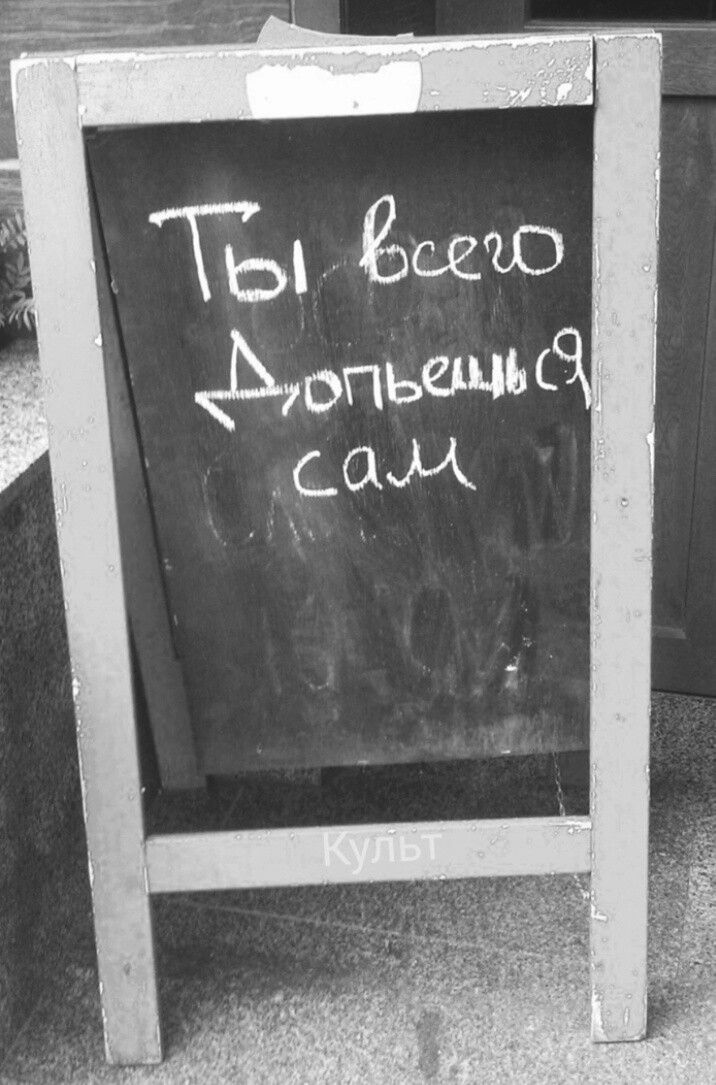 Ты всего
Допьешься
сам
Культ